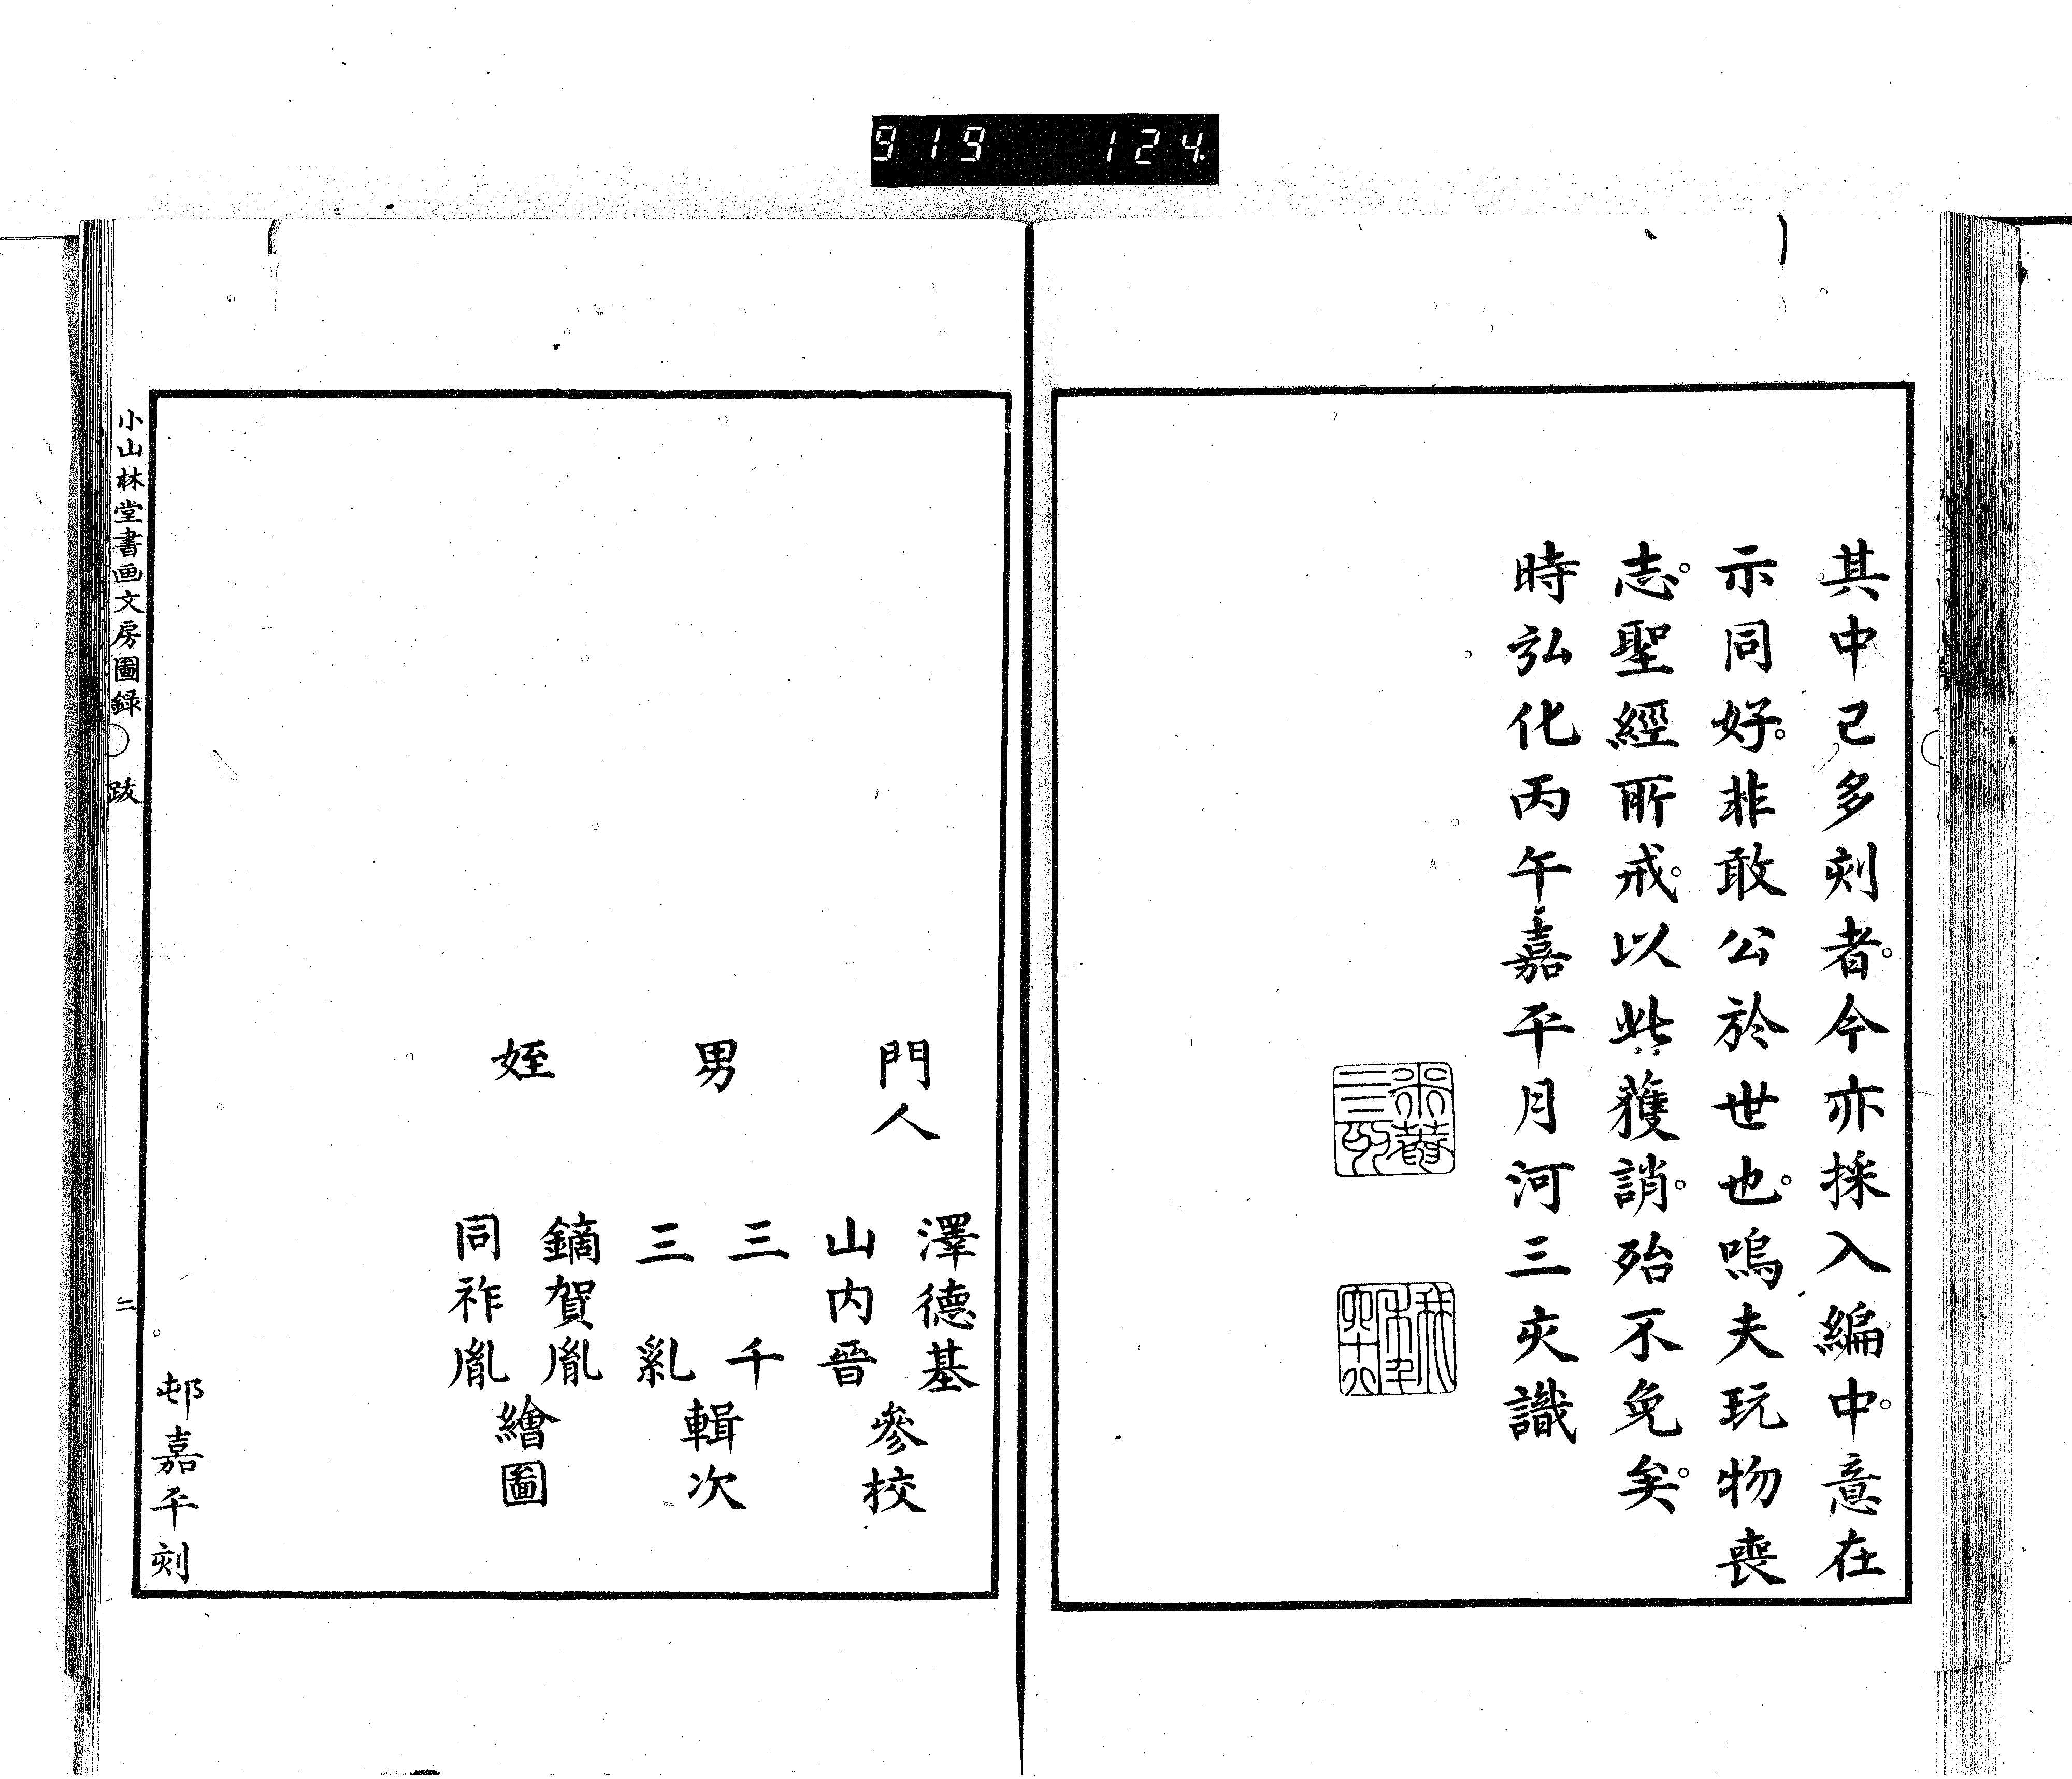 919 124
其中已多刻者。今亦採入編中。意在
示同好。非敢公於世也。嗚夫玩物喪
志。聖經所戒。以此獲誚。殆不免矣。
時弘化丙午嘉平月河三亥識
門人
澤德基
山内晉
參校
男
三千
三
輯次
姪
鏑賀胤
同祚胤
繪圖
邨嘉平刻
小山林堂書画文房圖録
跋
二